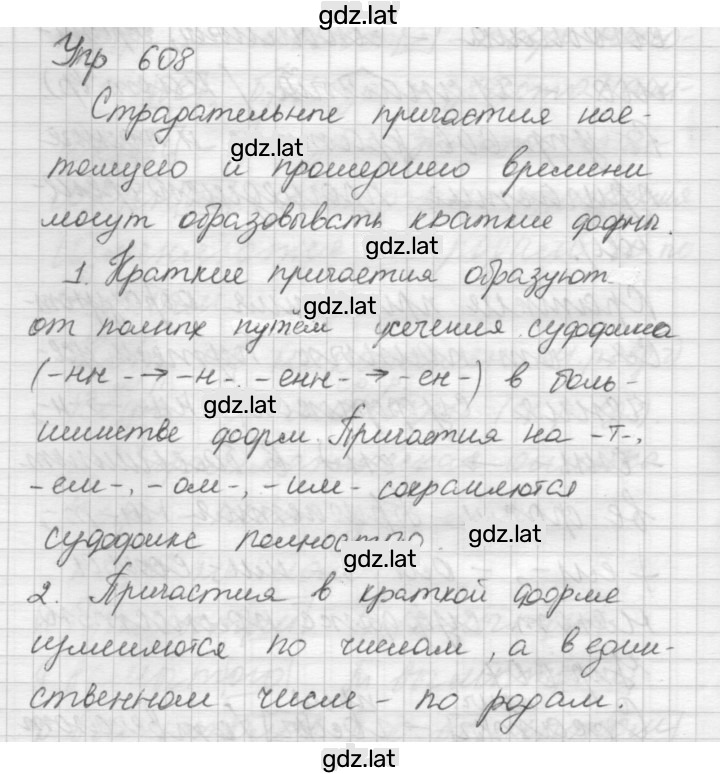 gdz.lat
Упр 608
Страдательные причастия нас-
gdz.lat
тоящего и прошедшего времени
могут образовывать краткие формы.
gdz.lat
1. Краткие причастия образуют
gdz.lat
от полных путём усечения суффикса
(-нн- → -н-, -енн- → -ен-) в боль-
gdz.lat
шинстве форм. Причастия на -т-,
-ем-, -ом-, -им- сохраняются
суффикс полностью.
gdz.lat
gdz.lat
2. Причастия в краткой форме
изменяются по числам, а в един-
ственном числе - по родам.
gdz.lat